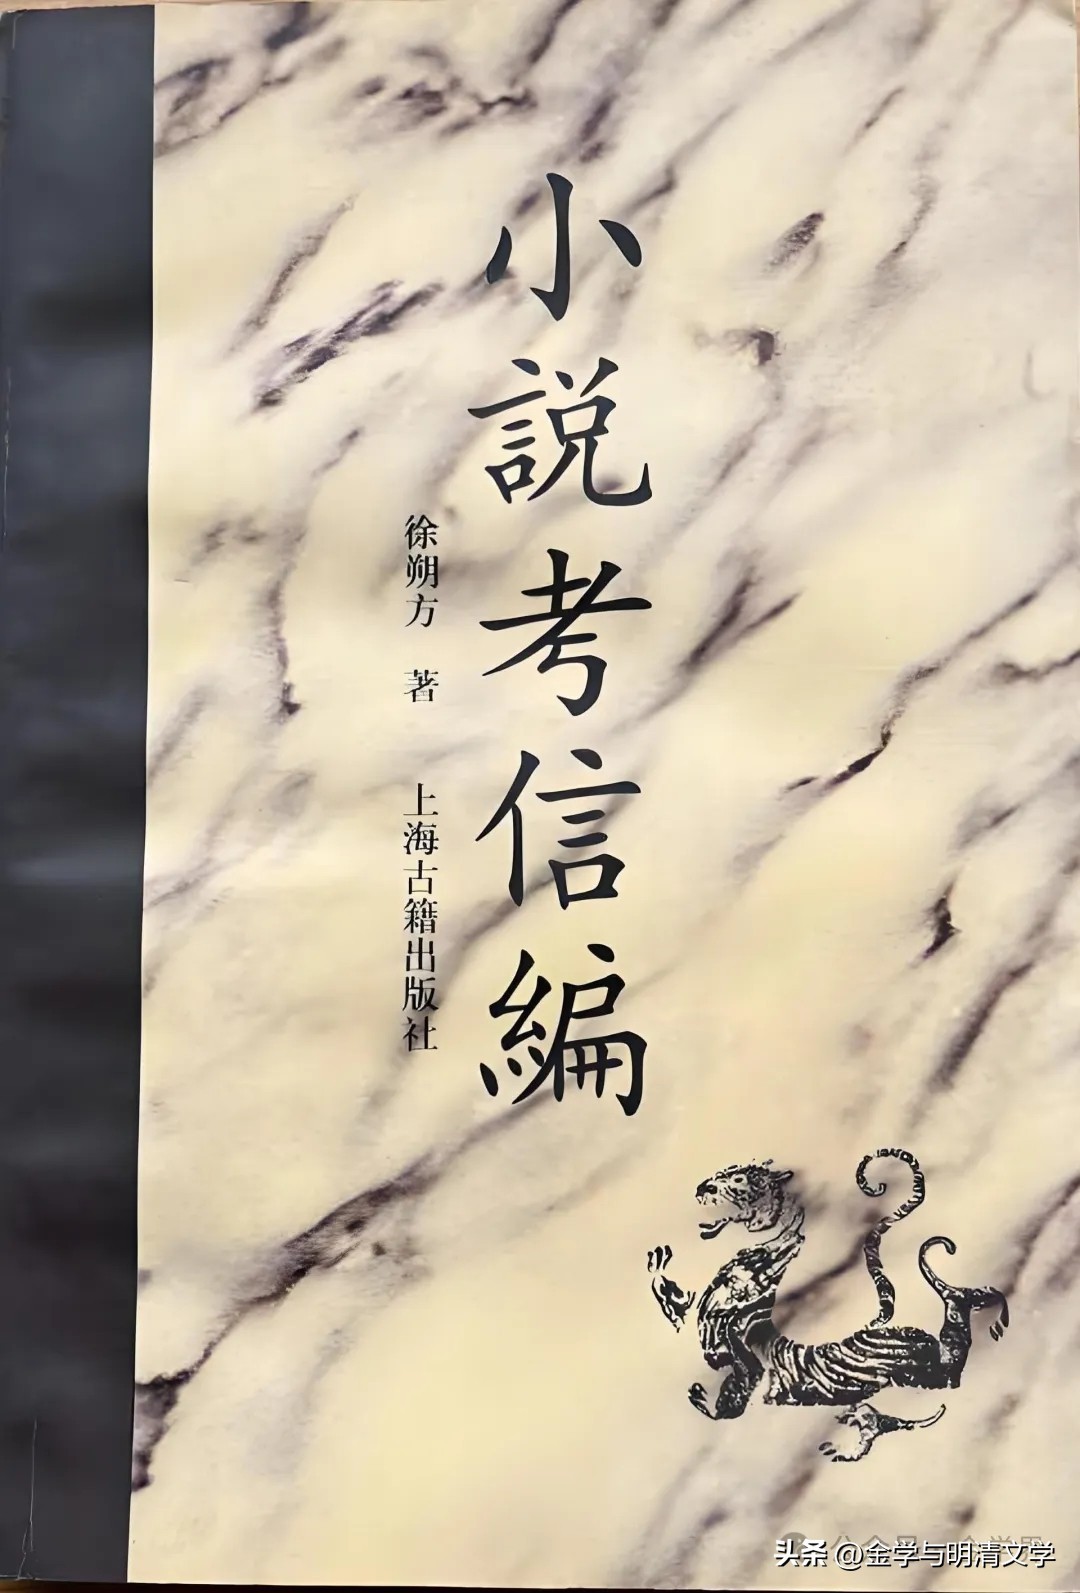 小說考信編
徐朔方 著 上海古籍出版社
头条 @金学与明清文学